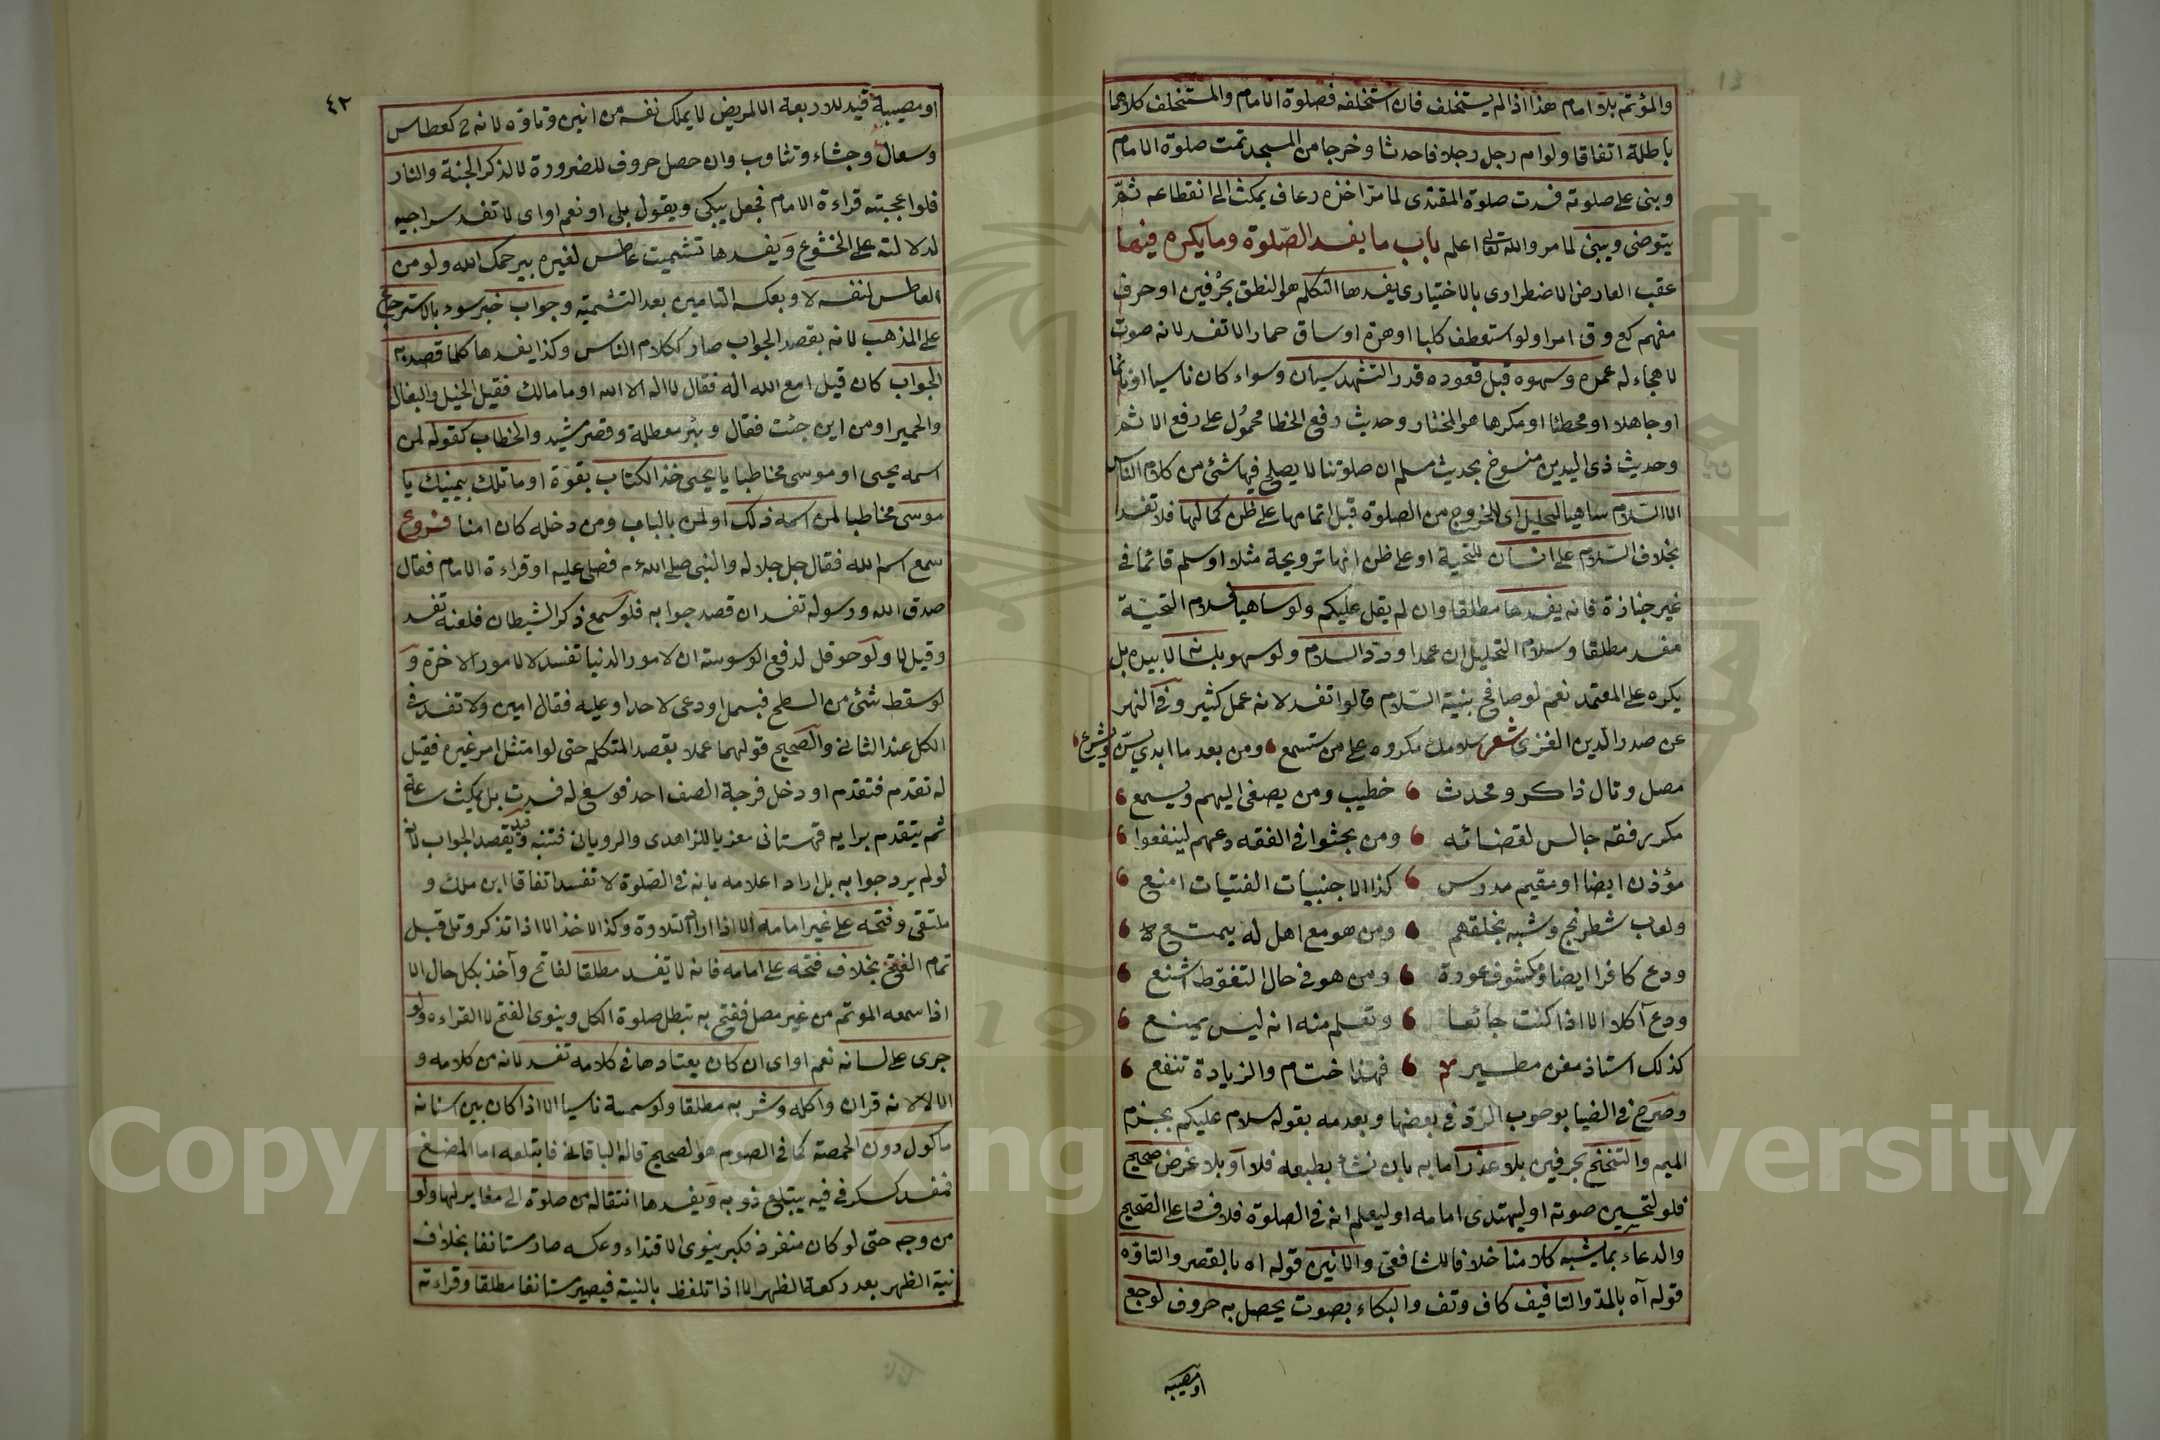 والمؤتم بلا امام هذا اذا لم يستخلف فان استخلفه فصلوة الامام والمستخلف كلاهما
باطلة اتفاقا ولو ام رجل رجلا فاحدثا وخرجا من المسجد تمت صلوة الامام
وبنى على صلوته فسدت صلوة المقتدى لما مر اخذه رعاف يمكث الى انقطاعه ثم
يتوضى ويبنى لما مر والله تعالى اعلم باب ما يفسد الصلوة وما يكره فيها
عقب العارض الاضطرارى بالاختيارى يفسدها التكلم هو النطق بحرفين او حرف
مفهم كع وق امرا ولو استعطف كلبا او هرة او ساق حمارا لا تفسد لانه صوت
لا هجاء له عمده وسهوه قبل قعوده قدر التشهد سيان وسواء كان ناسيا او نائما
او جاهلا او مخطئا او مكرها هو المختار وحديث رفع الخطا محمول على رفع الاثم
وحديث ذى اليدين منسوخ بحديث مسلم ان صلوتنا لا يصلح فيها شئ من كلام الناس
الا السلام ساهيا لتحليل اى للخروج من الصلوة قبل اتمامها على ظن كمالها فلا تفسد
بخلاف السلام على انسان للتحية او على ظن انها ترويحة مثلا او سلم قائما فى
غير جنازة فانه يفسدها مطلقا وان لم يقل عليكم ولو ساهيا فسلام التحية
مفسد مطلقا وسلام التحليل ان عمدا ورد السلام ولو سهوا بلسانه لا بيده بل
يكره على المعتمد نعم لو صافح بنية السلام قالوا تفسد لانه عمل كثير وفى النهر
عن صدر الدين الغزى شعر سلامك مكروه على من ستسمع ومن بعد ما ابدي يسن ويشرع
مصل وتال ذاكر ومحدث خطيب ومن يصغى اليهم ويسمع
مكرر فقه جالس لقضائه ومن بحثوا فى الفقه دعهم لينفعوا
مؤذن ايضا او مقيم مدرس كذا الاجنبيات الفتيات امنع
ولعاب شطرنج وشبه بخلقهم ومن هو مع اهل له يتمتع
ودع كافرا ايضا ومكشوف عورة ومن هو فى حال التغوط اشنع
ودع آكلا الا اذا كنت جائعا وتعلم منه انه ليس يمنع
كذلك استاذ مغن مطير فهذا ختام والزيادة تنفع
وصرح فى الضيا بوجوب الرد فى بعضها وبعدمه بقوله سلام عليكم بجزم
الميم والتنحنح بحرفين بلا عذر اما به بان نشأ بطبعه فلا او بلا غرض صحيح
فلو لتحسين صوته او ليهتدى امامه او ليعلم انه فى الصلوة فلا فساد على الصحيح
والدعاء بما يشبه كلامنا خلافا للشافعى والانين قوله اه بالقصر والتاوه
قوله آه بالمد والتافيف كاف وتف والبكاء بصوت يحصل به حروف لوجع
او مصيبة
٤٢
او مصيبة قيد للاربعة الا لمريض لا يملك نفسه من انين وتاوه لانه ح كعطاس
وسعال وجشاء وتثاوب وان حصل حروف للضرورة لا لذكر الجنة والنار
فلو اعجبته قراءة الامام فجعل يبكى ويقول بلى او نعم او اى لا تفسد سراجيه
لدلالته على الخشوع ويفسدها تشميت عاطس لغيره بيرحمك الله ولو من
العاطس لنفسه لا وبعكسه التامين بعد التشميت وجواب خبر سوء بالاسترجاع
على المذهب لانه بقصد الجواب صار ككلام الناس وكذا يفسدها كلما قصد به
الجواب كان قيل امع الله اله فقال لا اله الا الله او ما مالك فقيل الخيل والبغال
والحمير او من اين جئت فقال وبئر معطلة وقصر مشيد والخطاب كقوله لمن
اسمه يحيى او موسى مخاطبا يا يحيى خذ الكتاب بقوة او ما تلك بيمينك يا
موسى مخاطبا لمن اسمه ذلك او لمن بالباب ومن دخله كان امنا فروع
سمع اسم الله فقال جل جلاله والنبى صلى الله ع م فصلى عليه او قراءة الامام فقال
صدق الله ورسوله تفسد ان قصد جوابه فلو سمع ذكر الشيطان فلعنه تفسد
وقيل لا ولو حوقل لدفع الوسوسة ان لامور الدنيا تفسد لا لامور الاخرة و
لو سقط شئ من السطح فبسمل او دعى لاحد او عليه فقال امين ولا تفسد فى
الكل عند الثانى والصحيح قولهما عملا بقصد المتكلم حتى لو امتثل امر غيره فقيل
له تقدم فتقدم او دخل فرجة الصف احد فوسع له فسدت بل يمكث ساعة
ثم يتقدم برايه قهستانى معزيا للزاهدى والرويانى فتنبه قيد بقصد الجواب لانه
لو لم يرد جوابه بل اراد اعلامه بانه فى الصلوة لا تفسد اتفاقا ابن ملك و
ملتقى وفتحه على غير امامه الا اذا اراد التلاوة وكذا الاخذ الا اذا تذكر وتلى قبل
تمام الفتح بخلاف فتحه على امامه فانه لا يفسد مطلقا لفاتح وآخذ بكل حال الا
اذا سمعه الموتم من غير مصل ففتح به تبطل صلوة الكل وينوى الفتح لا القراءه ولو
جرى على لسانه نعم او اى ان كان يعتادها فى كلامه تفسد لانه من كلامه و
الا لا لانه قران واكله وشربه مطلقا ولو سمسة ناسيا الا اذا كان بين اسنانه
ماكول دون الحمصة كما فى الصوم هو الصحيح قاله الباقانى فابتلعه اما المضغ
فمفسد كسكر فى فيه يبتلع ذوبه ويفسدها انتقاله من صلوة الى مغايرلها ولو
من وجه حتى لو كان منفردا فكبر ينوى الاقتداء وعكسه صار مستانفا بخلاف
نية الظهر بعد ركعة الظهر الا اذا تلفظ بالنية فيصير مستانفا مطلقا وقراءته
Copyright © King Saud University